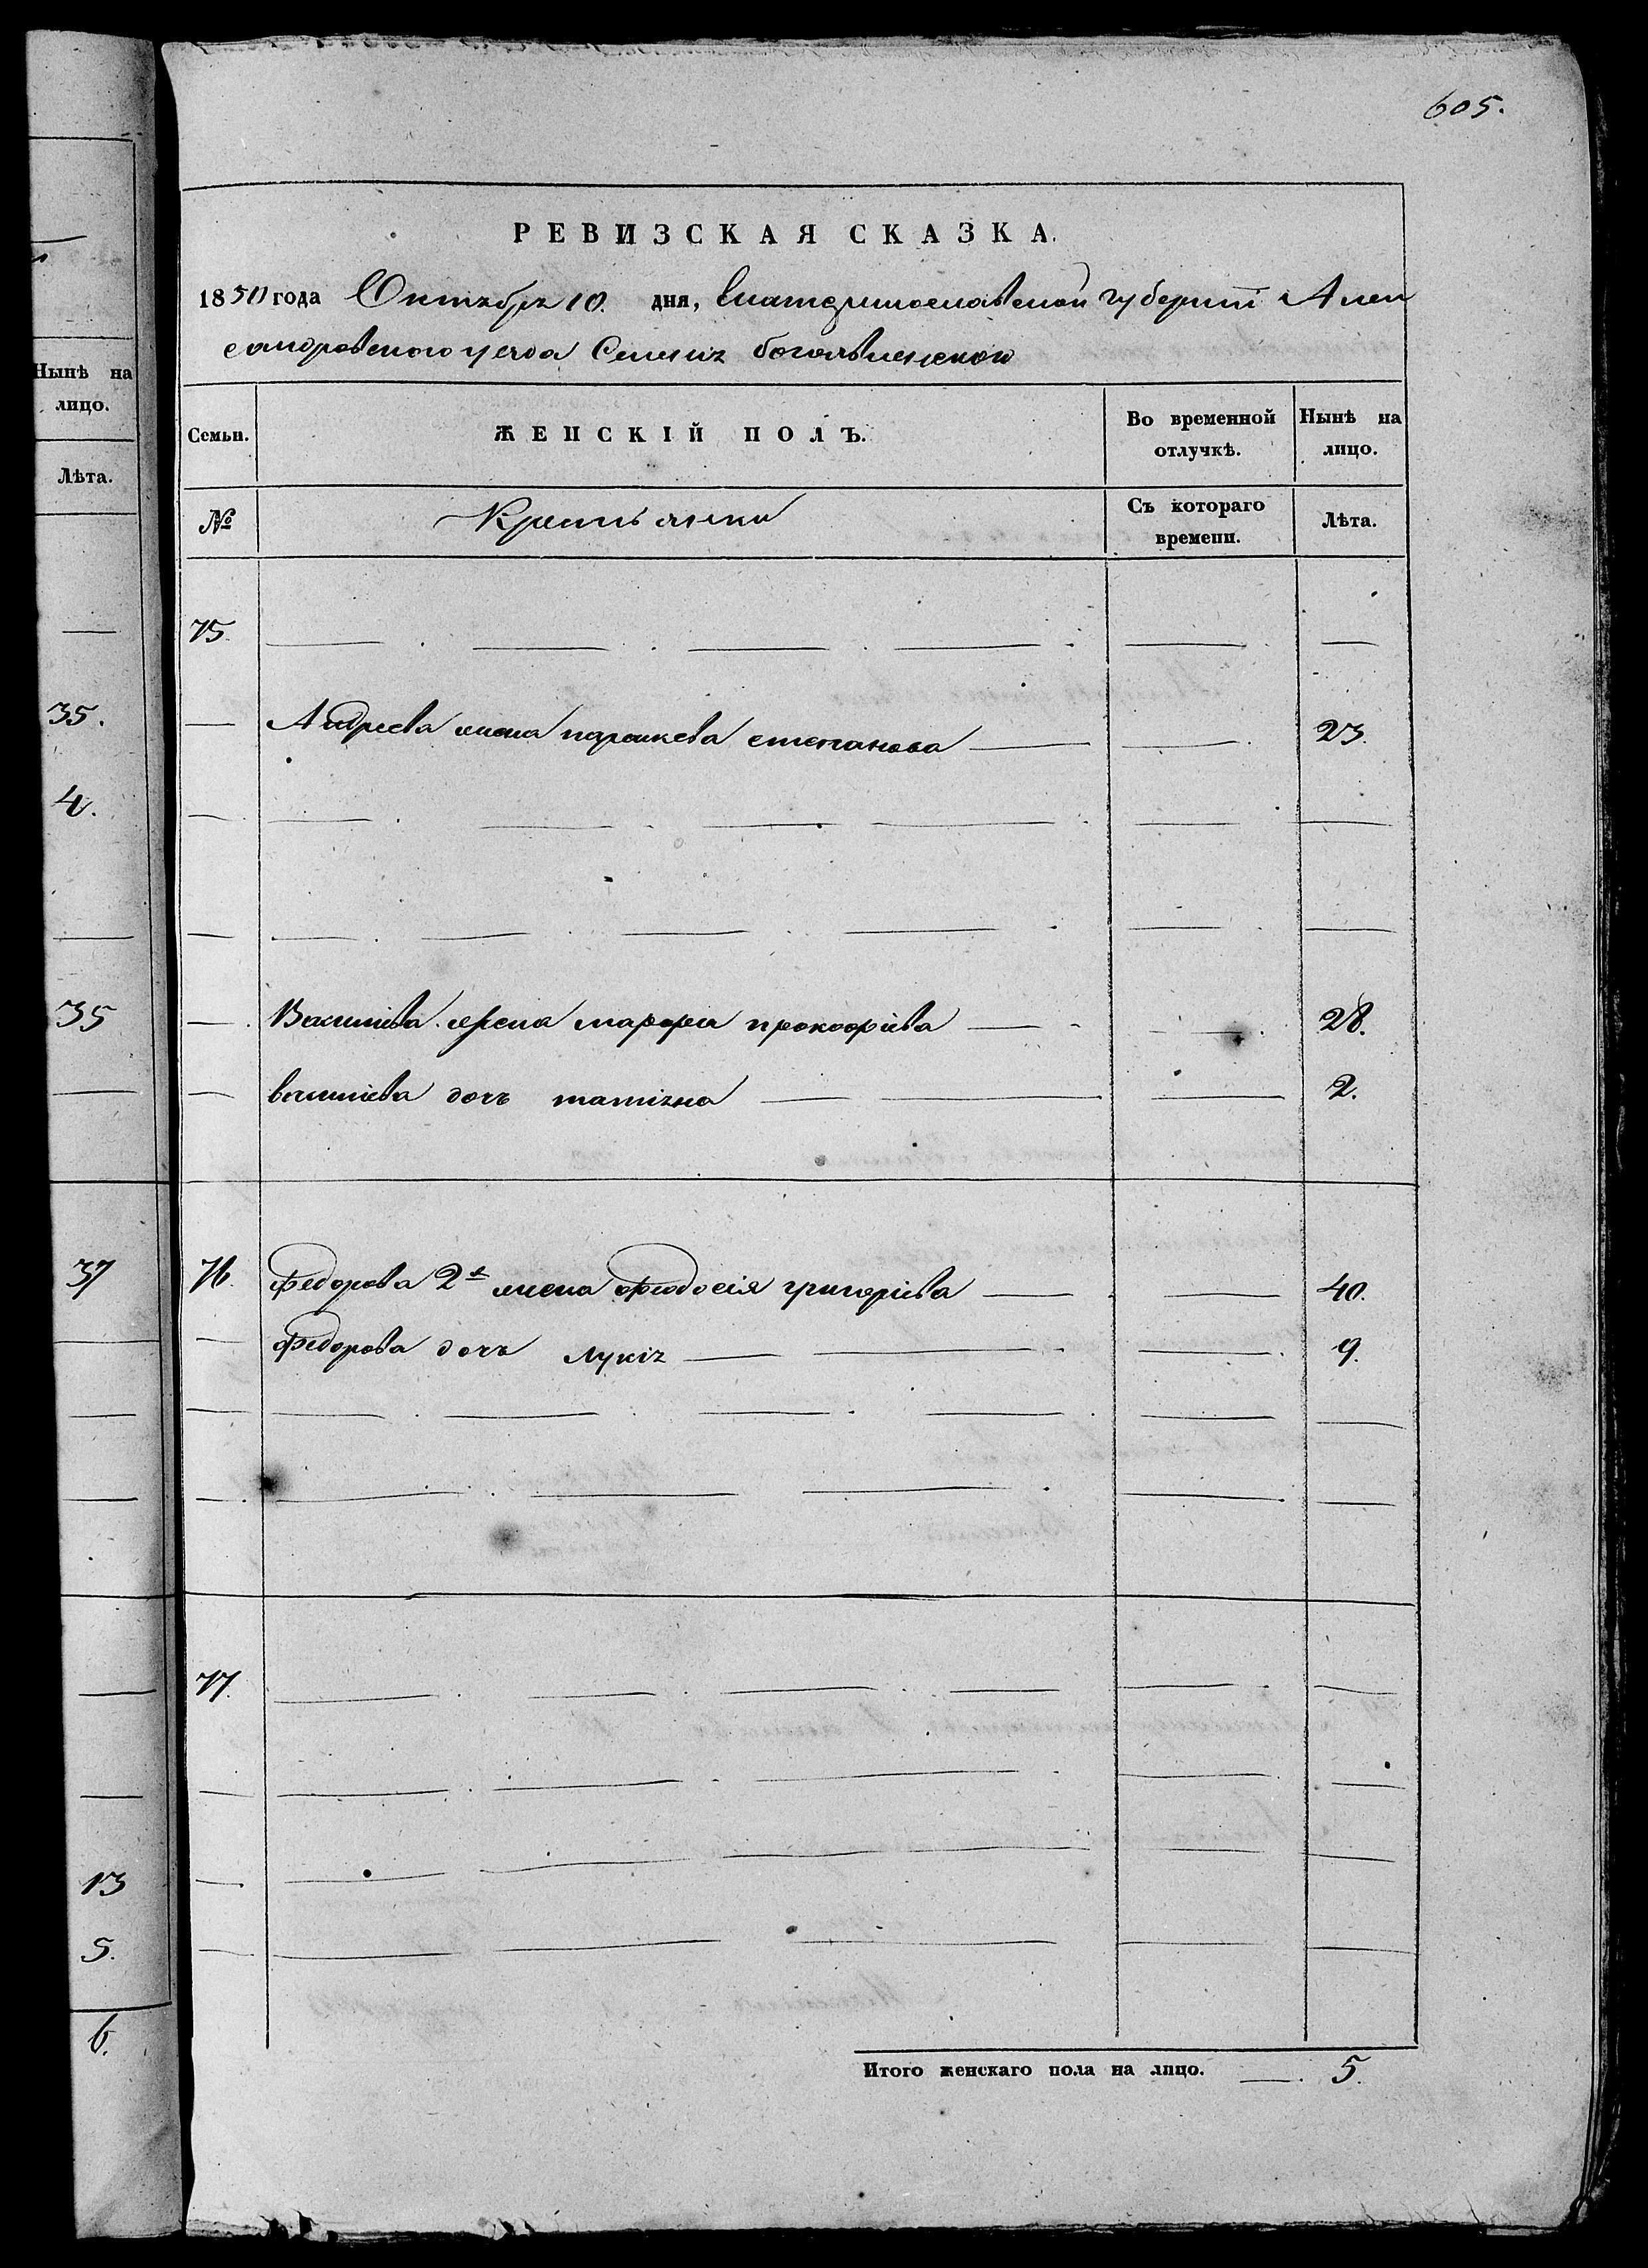 605.
РЕВИЗСКАЯ СКАЗКА.
1850 года Октября 10. дня, Екатеринославской губерніи Алек
сандровского уезда Селенія богоявленскои
Нынѣ на
лицо.
Лѣта.
Семьи. ЖЕНСКІЙ ПОЛЪ. Во временной отлучкѣ. Нынѣ на лицо.
№ Крестьянки Съ котораго времени. Лѣта.
75.
35. Андреева жена параскева степанова 23.
4.
35 Василіева жена марфа прокофіева 28.
василіева дочь татіяна 2.
37 76. Федорова 2я жена Феодосія григоріева 40.
Федорова дочь лукія 9.
77.
13
5.
6.
Итого женскаго пола на лицо. 5.